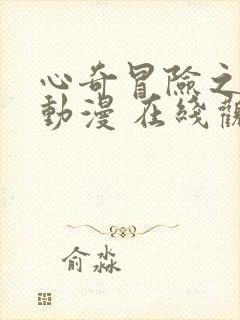 心奇冒險之
動漫 在綫觀
俞淼